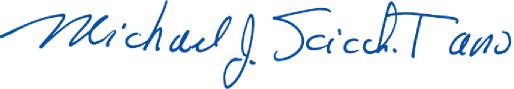 Michael J. Scicch.Tano